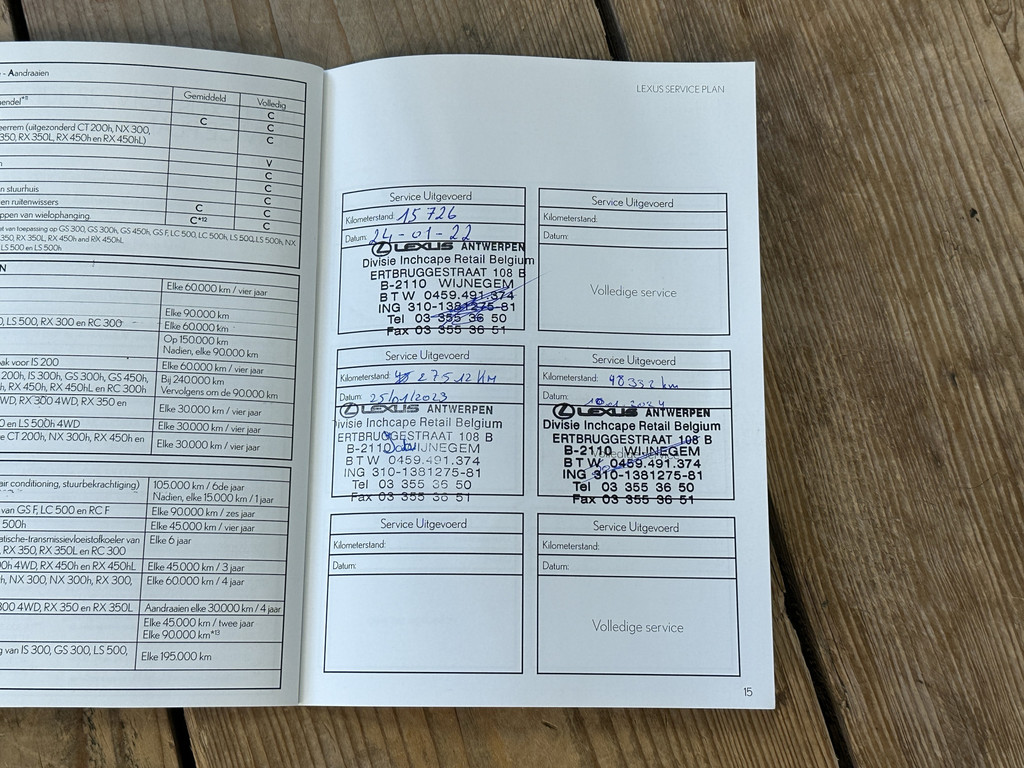 - Aandraaien
Gemiddeld Volledig
C
C
eerrem (uitgezonderd CT 200h, NX 300, C
350, RX 350L, RX 450h en RX 450hL)
V
C
n stuurhuis C
en ruitenwissers C C
ppen van wielophanging. C*12 C
et van toepassing op GS 300, GS 300h, GS 450h, GS F, LC 500, LC 500h, LS 500, LS 500h, NX
350, RX 350L, RX 450h and RX 450hL
LS 500 en LS 500h
Elke 60.000 km / vier jaar
Elke 90.000 km
, LS 500, RX 300 en RC 300 Elke 60.000 km
Op 150.000 km
Nadien, elke 90.000 km
bak voor IS 200 Elke 60.000 km / vier jaar
200h, IS 300h, GS 300h, GS 450h, Bij 240.000 km
h, RX 450h, RX 450hL en RC 300h Vervolgens om de 90.000 km
WD, RX 300 4WD, RX 350 en Elke 30.000 km / vier jaar
0 en LS 500h 4WD Elke 30.000 km / vier jaar
e CT 200h, NX 300h, RX 450h en Elke 30.000 km / vier jaar
air conditioning, stuurbekrachtiging) 105.000 km / 6de jaar
Nadien, elke 15.000 km / 1 jaar
van GS F, LC 500 en RC F Elke 90.000 km / zes jaar
500h Elke 45.000 km / vier jaar
atische-transmissievloeistofkoeler van Elke 6 jaar
, RX 350, RX 350L en RC 300
00h 4WD, RX 450h en RX 450hL Elke 45.000 km / 3 jaar
h, NX 300, NX 300h, RX 300, Elke 60.000 km / 4 jaar
300 4WD, RX 350 en RX 350L Aandraaien elke 30.000 km / 4 jaar
Elke 45.000 km / twee jaar
Elke 90.000 km*13
g van IS 300, GS 300, LS 500, Elke 195.000 km
LEXUS SERVICE PLAN
Service Uitgevoerd
Kilometerstand: 15 726
Datum: 24-01-22
LEXUS ANTWERPEN
Divisie Inchcape Retail Belgium
ERTBRUGGESTRAAT 108 B
B-2110 WIJNEGEM
BTW 0459.491.374
ING 310-1381275-81
Tel 03 355 36 50
Fax 03 355 36 51
Service Uitgevoerd
Kilometerstand:
Datum:
Volledige service
Service Uitgevoerd
Kilometerstand: 27512 KM
Datum: 25/01/2023
LEXUS ANTWERPEN
Divisie Inchcape Retail Belgium
ERTBRUGGESTRAAT 108 B
B-2110 WIJNEGEM
BTW 0459.491.374
ING 310-1381275-81
Tel 03 355 36 50
Fax 03 355 36 51
Service Uitgevoerd
Kilometerstand: 48332 km
Datum:
LEXUS ANTWERPEN
Divisie Inchcape Retail Belgium
ERTBRUGGESTRAAT 108 B
B-2110 WIJNEGEM
BTW 0459.491.374
ING 310-1381275-81
Tel 03 355 36 50
Fax 03 355 36 51
Service Uitgevoerd
Kilometerstand:
Datum:
Service Uitgevoerd
Kilometerstand:
Datum:
Volledige service
15